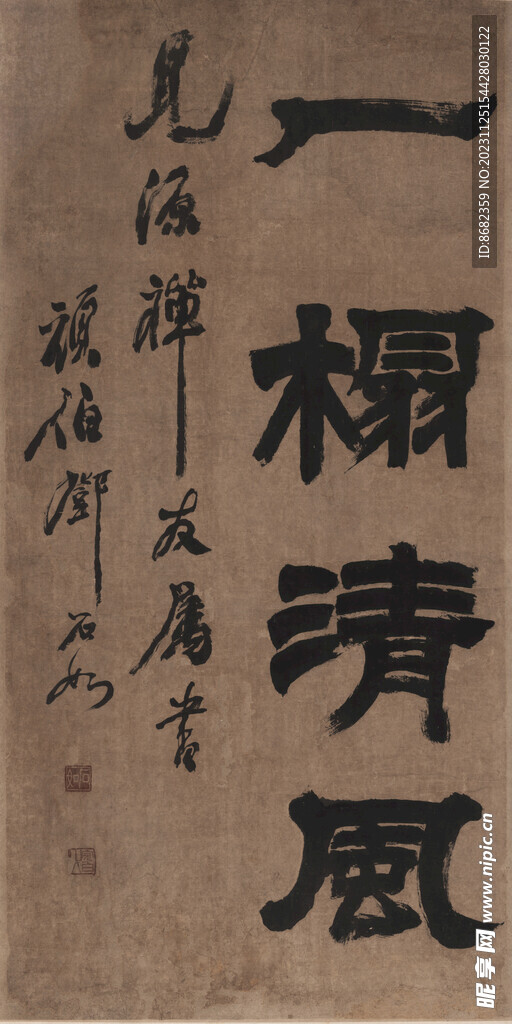 一榻清风
見源禪友屬書
頑伯鄧石如
石如
ID:8682359 NO:20231125154428030122
昵享网 www.nipic.cn